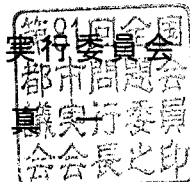 実行委員会
真一
第81回全国
都市問題会
議実行委員
会会長之印